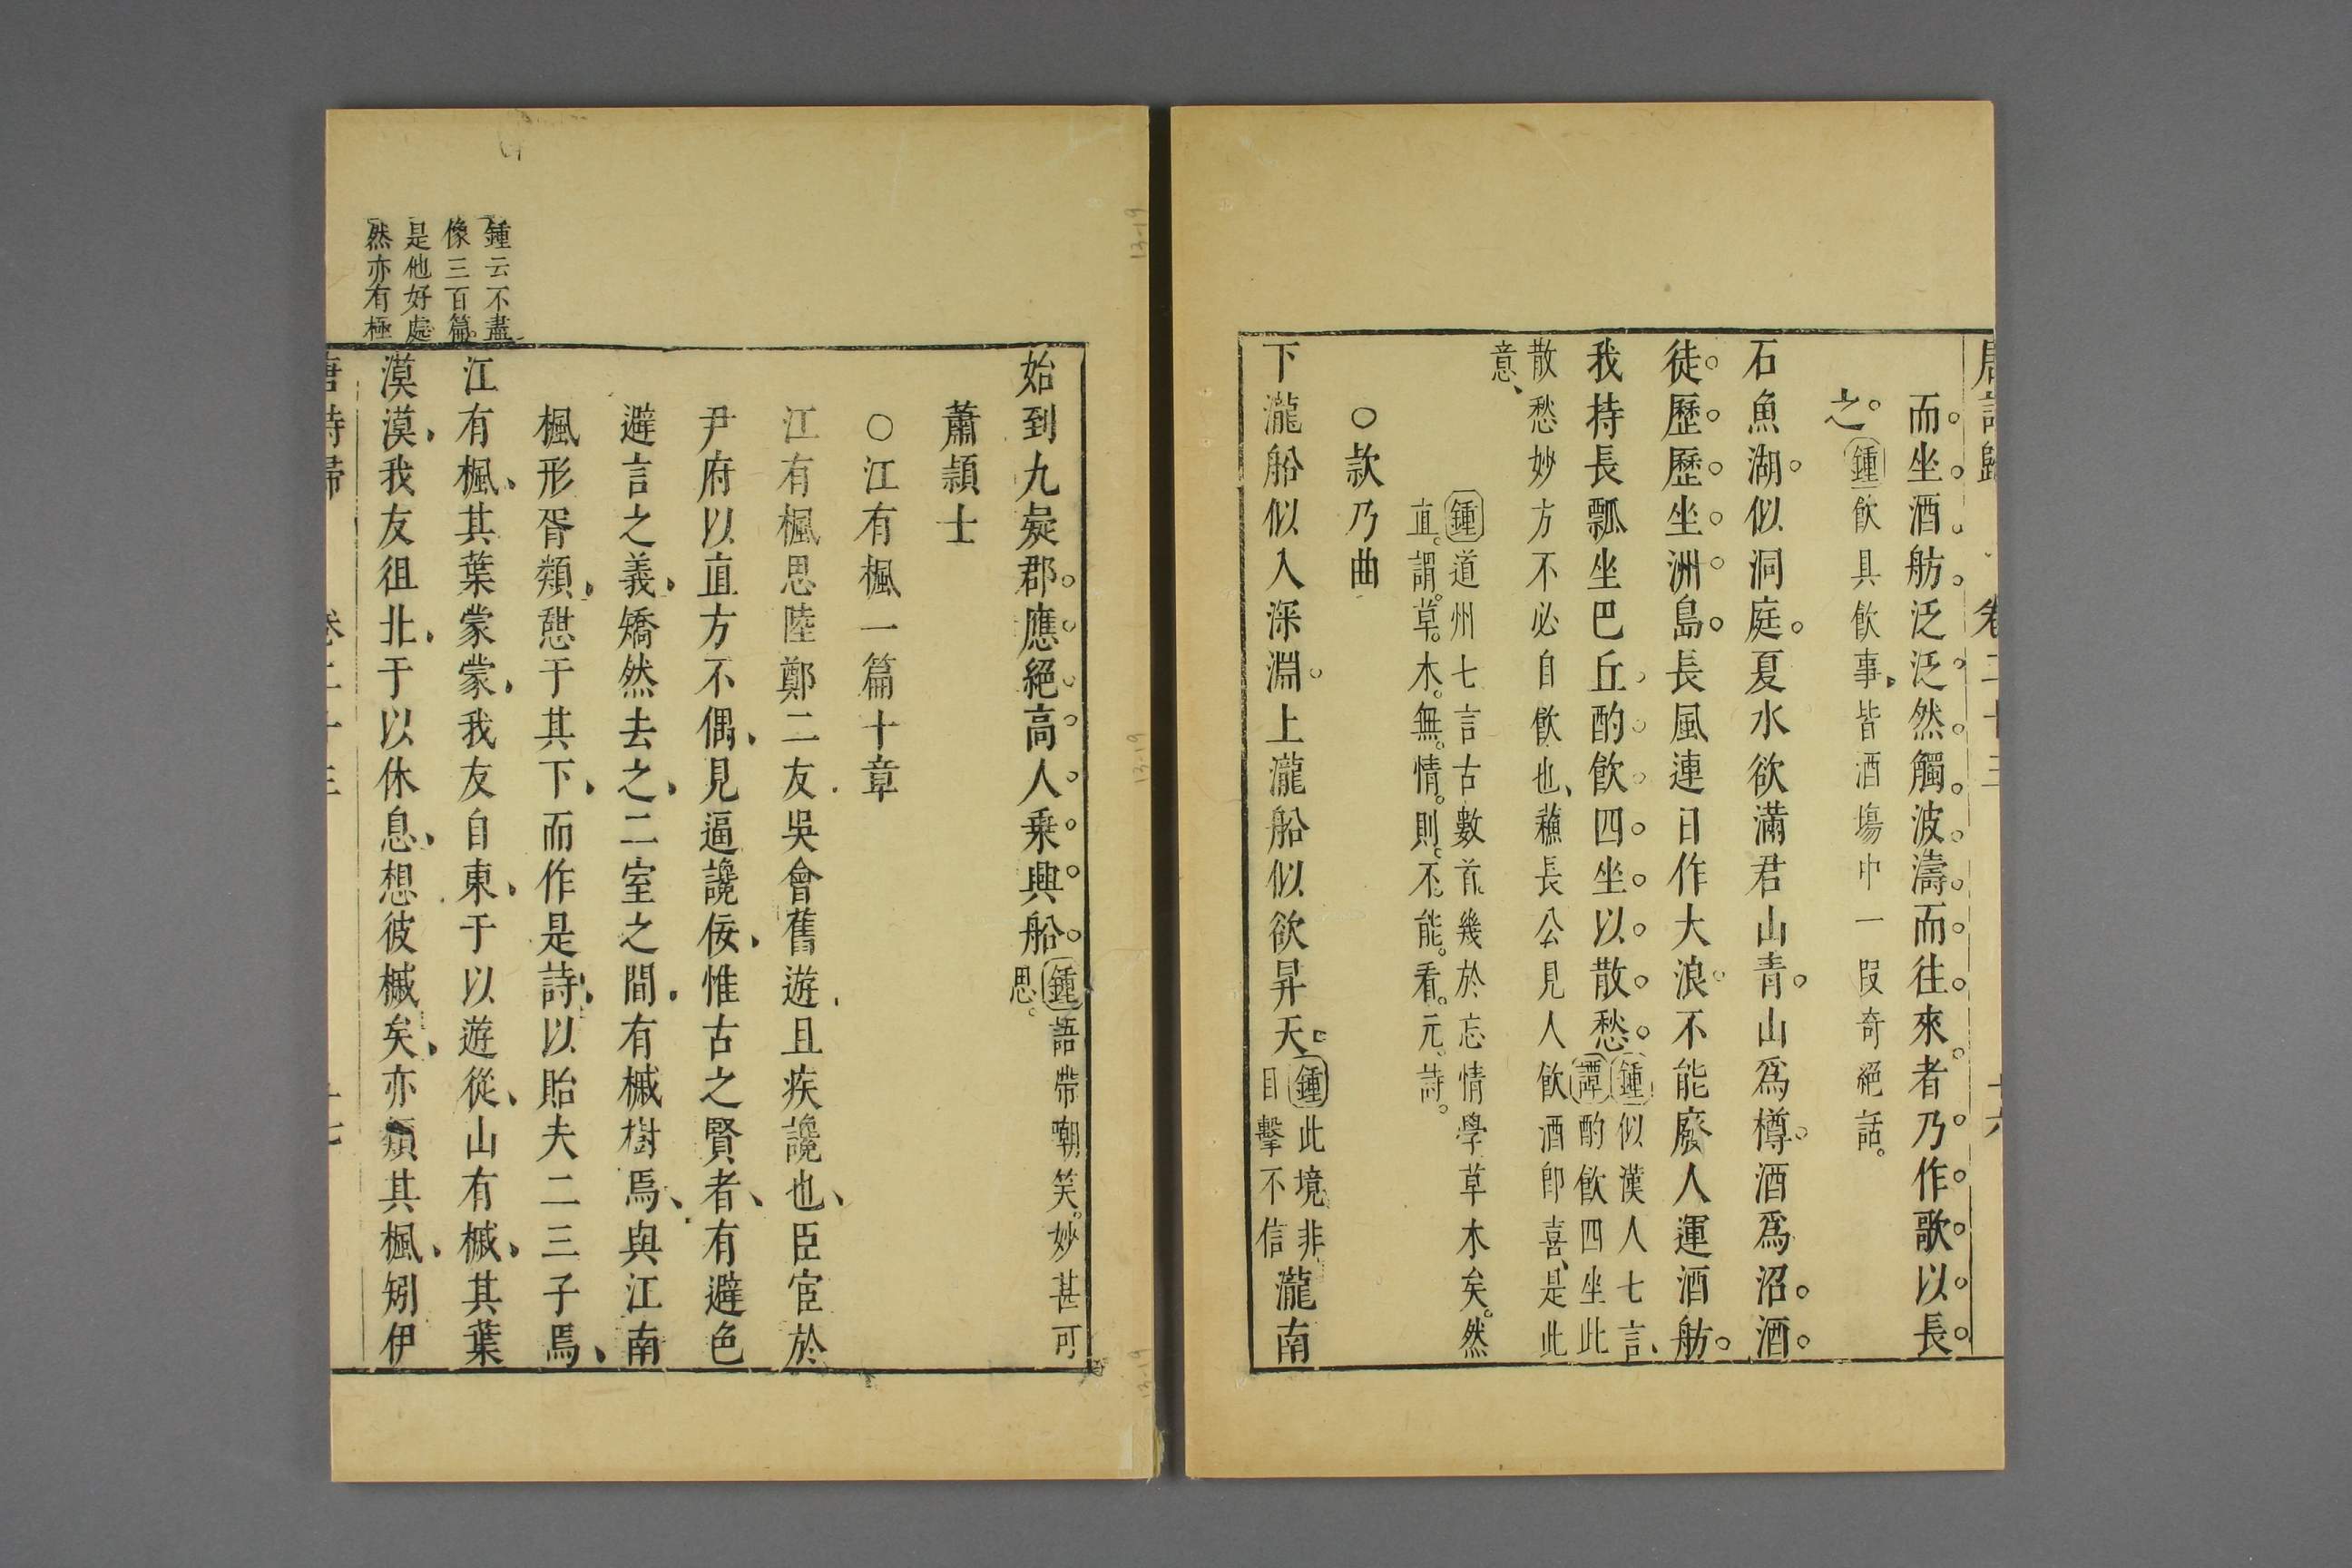 唐詩歸 卷二十三 十六
而坐酒舫泛泛然觸波濤而往來者乃作歌以長
之鍾飲具飲事皆酒場中一段奇絕話
石魚湖似洞庭夏水欲滿君山青山爲樽酒爲沼酒
徒歷歷坐洲島長風連日作大浪不能廢人運酒舫
我持長瓢坐巴丘酌飲四坐以散愁鍾似漢人七言
譚酌飲四坐此
散愁妙方不必自飲也蘓長公見人飲酒即喜是此
意
鍾道州七言古數首幾於忘情學草木矣然
直謂草木無情則不能看元詩
○款乃曲
下瀧船似入深淵上瀧船似欲昇天鍾此境非
目擊不信瀧南
始到九疑郡應絕高人乗興船鍾語帶嘲笑妙甚可
思
蕭頴士
○江有楓一篇十章
江有楓思陸鄭二友吳會舊遊且疾讒也臣宦於
尹府以直方不偶見逼讒佞惟古之賢者有避色
避言之義矯然去之二室之間有槭樹焉與江南
楓形胥類憇于其下而作是詩以貽夫二三子焉
鍾云不盡
像三百篇
是他好處
然亦有極
江有楓其葉蒙蒙我友自東于以遊從山有槭其葉
漠漠我友徂北于以休息想彼槭矣亦類其楓矧伊
唐詩歸 卷二十三 十七